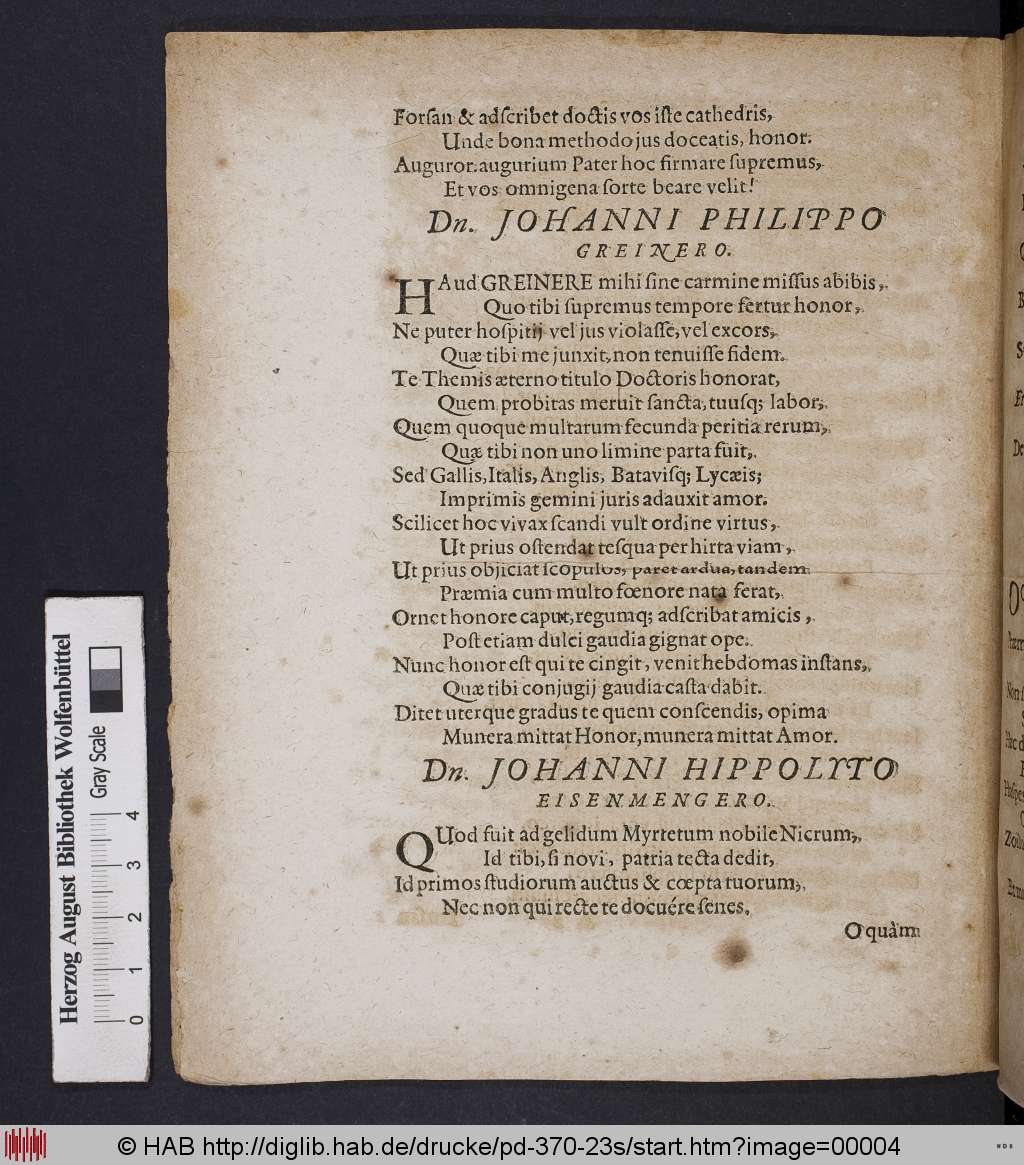 Forſan & adſcribet doctis vos iſte cathedris,
Unde bona methodo jus doceatis, honor.
Auguror. augurium Pater hoc firmare ſupremus,
Et vos omnigena ſorte beare velit!
Dn. JOHANNI PHILIPPO
GREINERO.
HAud GREINERE mihi ſine carmine miſſus abibis,
Quo tibi ſupremus tempore fertur honor,
Ne puter hoſpitij vel jus violaſſe, vel excors,
Quæ tibi me junxit, non tenuiſſe fidem.
Te Themis æterno titulo Doctoris honorat,
Quem probitas meruit ſancta, tuuſq; labor;
Quem quoque multarum fecunda peritia rerum,
Quæ tibi non uno limine parta fuit,
Sed Gallis, Italis, Anglis, Bataviſq; Lycæis;
Imprimis gemini juris adauxit amor.
Scilicet hoc vivax ſcandi vult ordine virtus,
Ut prius oſtendat teſqua per hirta viam,
Ut prius objiciat ſcopulos, paret ardua, tandem
Præmia cum multo fœnore nata ferat,
Ornet honore caput, regumq; adſcribat amicis,
Poſt etiam dulci gaudia gignat ope.
Nunc honor eſt qui te cingit, venit hebdomas inſtans,
Quæ tibi conjugij gaudia caſta dabit.
Ditet uterque gradus te quem conſcendis, opima
Munera mittat Honor, munera mittat Amor.
Dn. JOHANNI HIPPOLYTO
EISENMENGERO.
QUod fuit ad gelidum Myrtetum nobile Nicrum,
Id tibi, ſi novi, patria tecta dedit,
Id primos ſtudiorum auctus & cœpta tuorum,
Nec non qui recte te docuére ſenes.
O quàm
Herzog August Bibliothek Wolfenbüttel
Gray Scale
0 1 2 3 4
© HAB http://diglib.hab.de/drucke/pd-370-23s/start.htm?image=00004